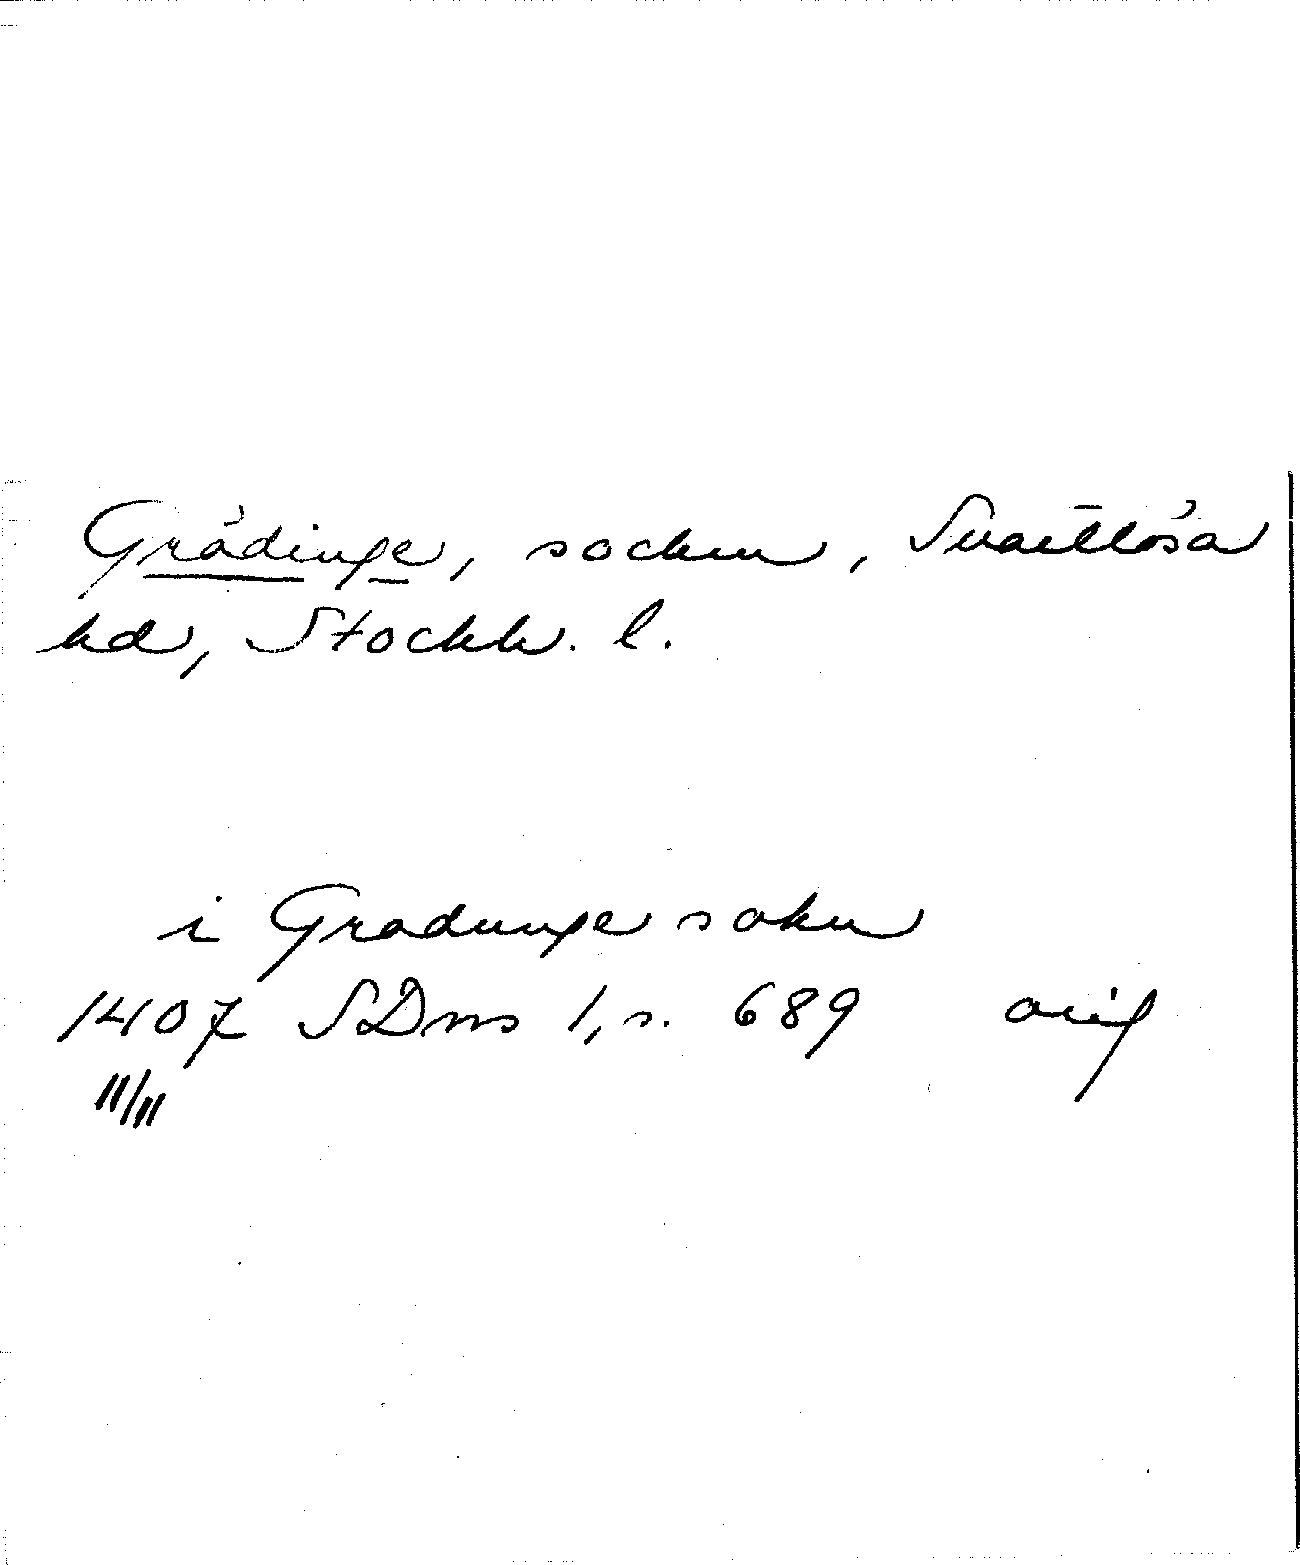 Grödinge, socken, Svartlösa
hd, Stockh. l.
i Gradunge sokn
1407 SDns 1, s. 689 orig
11/11